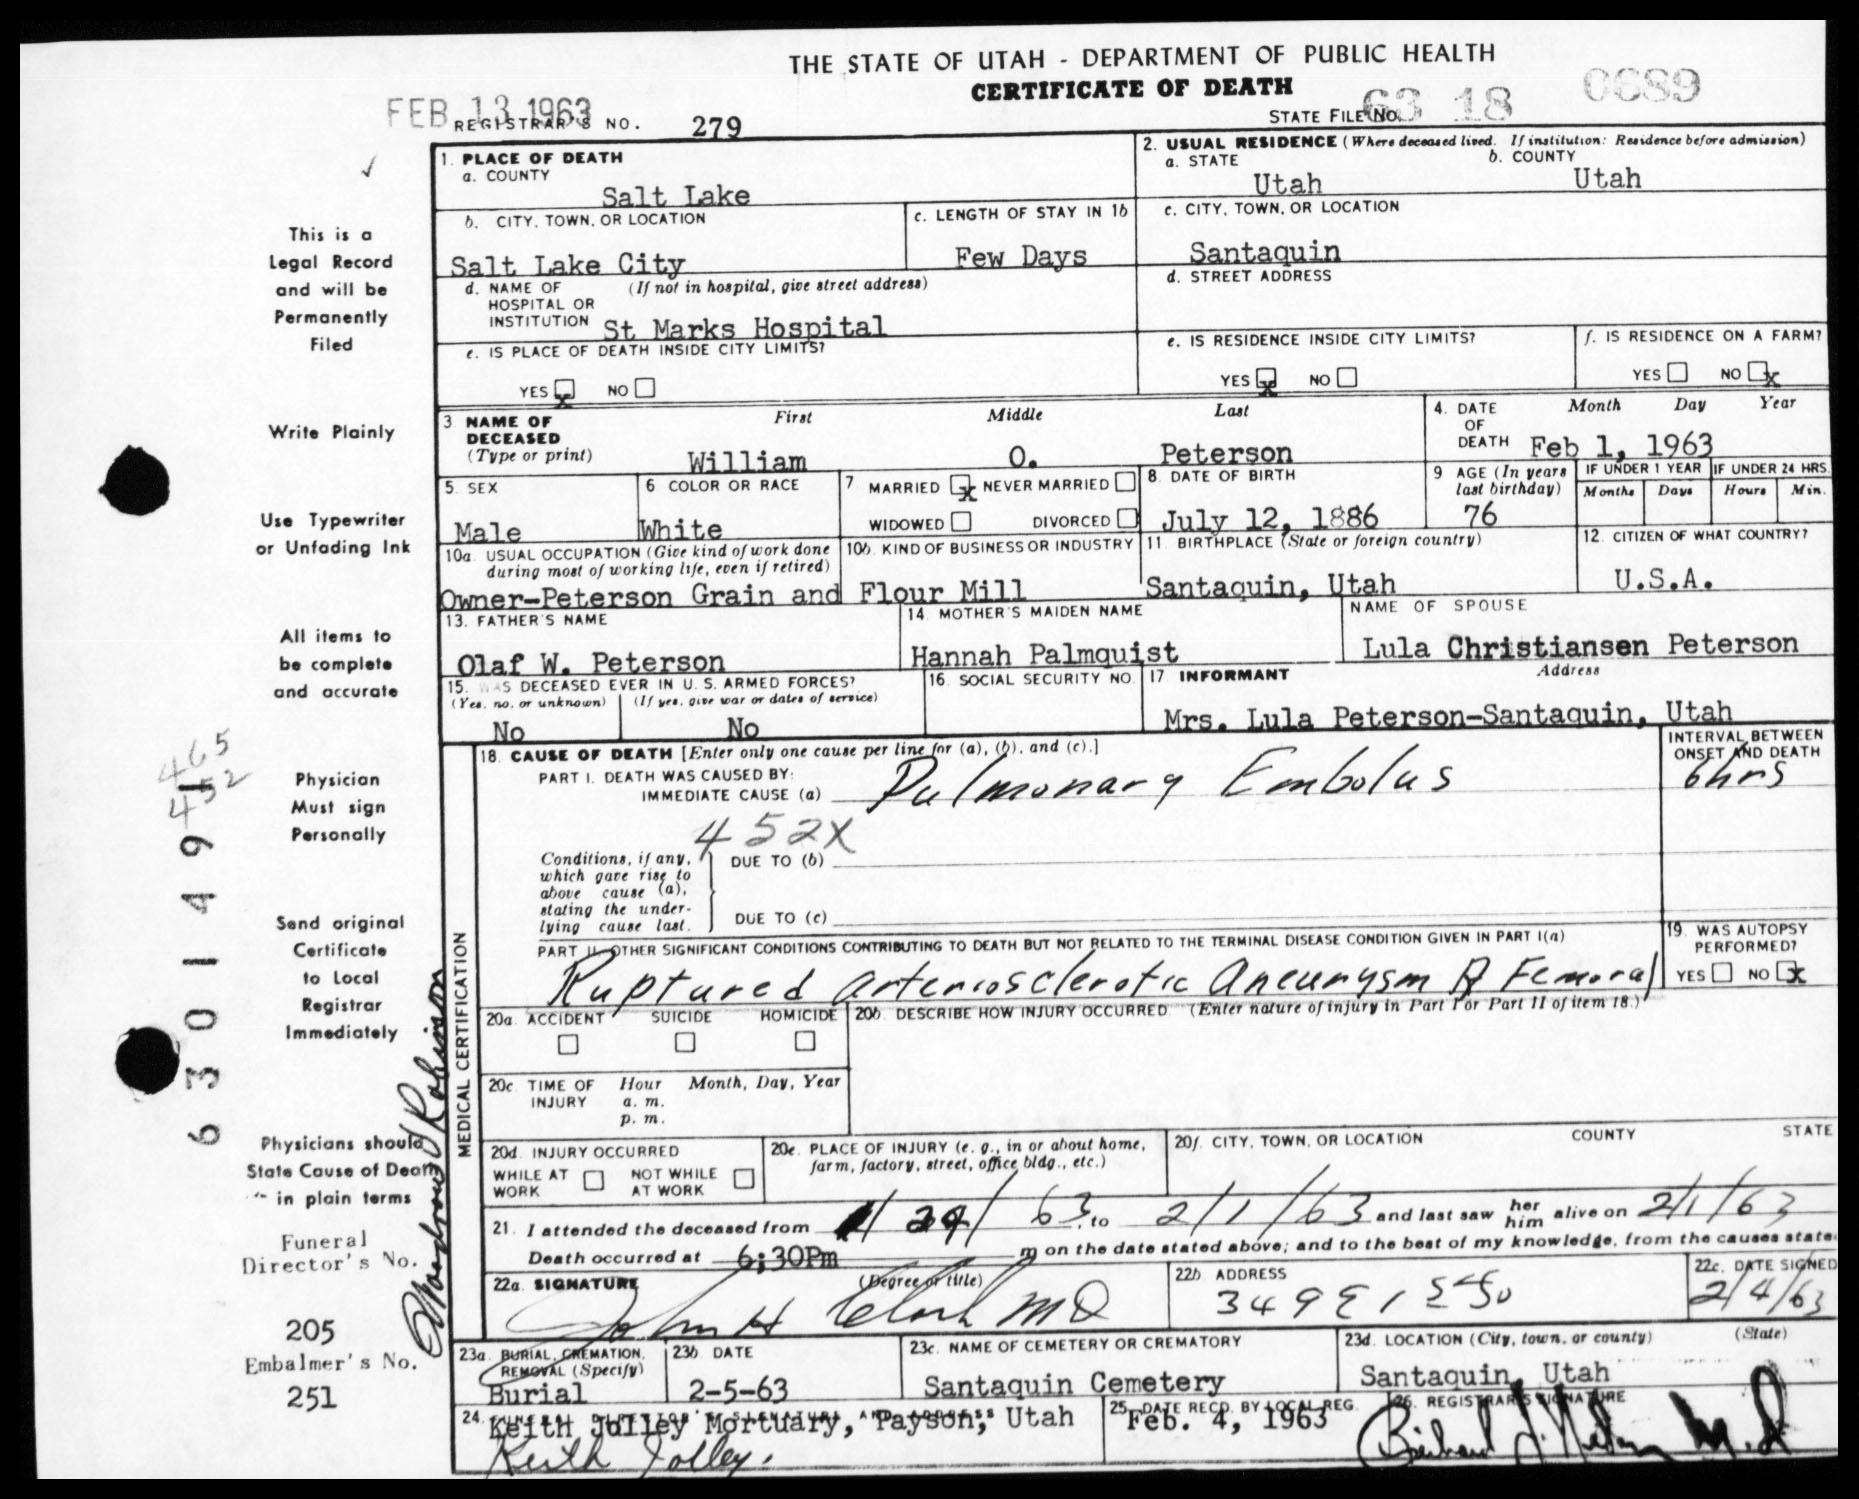 THE STATE OF UTAH - DEPARTMENT OF PUBLIC HEALTH
CERTIFICATE OF DEATH
FEB 13 1963
REGISTRAR'S NO. 279
STATE FILE NO. 63 18 0689
1. PLACE OF DEATH
a. COUNTY
Salt Lake
2. USUAL RESIDENCE (Where deceased lived. If institution: Residence before admission)
a. STATE
Utah
b. COUNTY
Utah
b. CITY, TOWN, OR LOCATION
Salt Lake City
c. LENGTH OF STAY IN 1b
Few Days
c. CITY, TOWN, OR LOCATION
Santaquin
d. NAME OF HOSPITAL OR INSTITUTION (If not in hospital, give street address)
St Marks Hospital
d. STREET ADDRESS
e. IS PLACE OF DEATH INSIDE CITY LIMITS?
YES x NO
e. IS RESIDENCE INSIDE CITY LIMITS?
YES x NO
f. IS RESIDENCE ON A FARM?
YES NO x
3 NAME OF DECEASED (Type or print)
First Middle Last
William O. Peterson
4. DATE OF DEATH
Month Day Year
Feb 1, 1963
5. SEX
Male
6 COLOR OR RACE
White
7 MARRIED x NEVER MARRIED
WIDOWED DIVORCED
8. DATE OF BIRTH
July 12, 1886
9 AGE (In years last birthday)
76
IF UNDER 1 YEAR
Months Days
IF UNDER 24 HRS.
Hours Min.
10a. USUAL OCCUPATION (Give kind of work done during most of working life, even if retired)
10b. KIND OF BUSINESS OR INDUSTRY
Owner-Peterson Grain and Flour Mill
11. BIRTHPLACE (State or foreign country)
Santaquin, Utah
12. CITIZEN OF WHAT COUNTRY?
U.S.A.
13. FATHER'S NAME
Olaf W. Peterson
14. MOTHER'S MAIDEN NAME
Hannah Palmquist
NAME OF SPOUSE
Lula Christiansen Peterson
15. WAS DECEASED EVER IN U. S. ARMED FORCES?
(Yes, no, or unknown) (If yes, give war or dates of service)
No No
16. SOCIAL SECURITY NO.
17 INFORMANT Address
Mrs. Lula Peterson-Santaquin, Utah
18. CAUSE OF DEATH [Enter only one cause per line for (a), (b), and (c).]
INTERVAL BETWEEN ONSET AND DEATH
PART I. DEATH WAS CAUSED BY:
IMMEDIATE CAUSE (a) Pulmonary Embolus
6hrs
452X
Conditions, if any, which gave rise to above cause (a), stating the underlying cause last.
DUE TO (b)
DUE TO (c)
PART II. OTHER SIGNIFICANT CONDITIONS CONTRIBUTING TO DEATH BUT NOT RELATED TO THE TERMINAL DISEASE CONDITION GIVEN IN PART I(a)
Ruptured arteriosclerotic Aneurysm R Femoral
19. WAS AUTOPSY PERFORMED?
YES NO x
20a. ACCIDENT SUICIDE HOMICIDE
20b. DESCRIBE HOW INJURY OCCURRED. (Enter nature of injury in Part I or Part II of item 18.)
20c TIME OF INJURY
Hour Month, Day, Year
a. m.
p. m.
20d. INJURY OCCURRED
WHILE AT WORK NOT WHILE AT WORK
20e. PLACE OF INJURY (e. g., in or about home, farm, factory, street, office bldg., etc.)
20f. CITY, TOWN, OR LOCATION COUNTY STATE
21. I attended the deceased from 1/29/63, to 2/1/63 and last saw her him alive on 2/1/63
Death occurred at 6:30Pm m on the date stated above; and to the best of my knowledge, from the causes state
22a. SIGNATURE (Degree or title)
John H Clark MD
22b ADDRESS
349 E 1 So
22c. DATE SIGNED
2/4/63
23a. BURIAL, CREMATION, REMOVAL (Specify)
Burial
23b DATE
2-5-63
23c. NAME OF CEMETERY OR CREMATORY
Santaquin Cemetery
23d. LOCATION (City, town, or county) (State)
Santaquin, Utah
24. FUNERAL DIRECTOR'S SIGNATURE AND ADDRESS
Keith Jolley Mortuary, Payson, Utah
Keith Jolley.
25. DATE RECD. BY LOCAL REG.
Feb. 4, 1963
26. REGISTRAR'S SIGNATURE
M.D
MEDICAL CERTIFICATION
This is a
Legal Record
and will be
Permanently
Filed
Write Plainly
Use Typewriter
or Unfading Ink
All items to
be complete
and accurate
465
452
Physician
Must sign
Personally
Send original
Certificate
to Local
Registrar
Immediately
Physicians should
State Cause of Death
in plain terms
Funeral
Director's No.
205
Embalmer's No.
251
6301491
Robinson